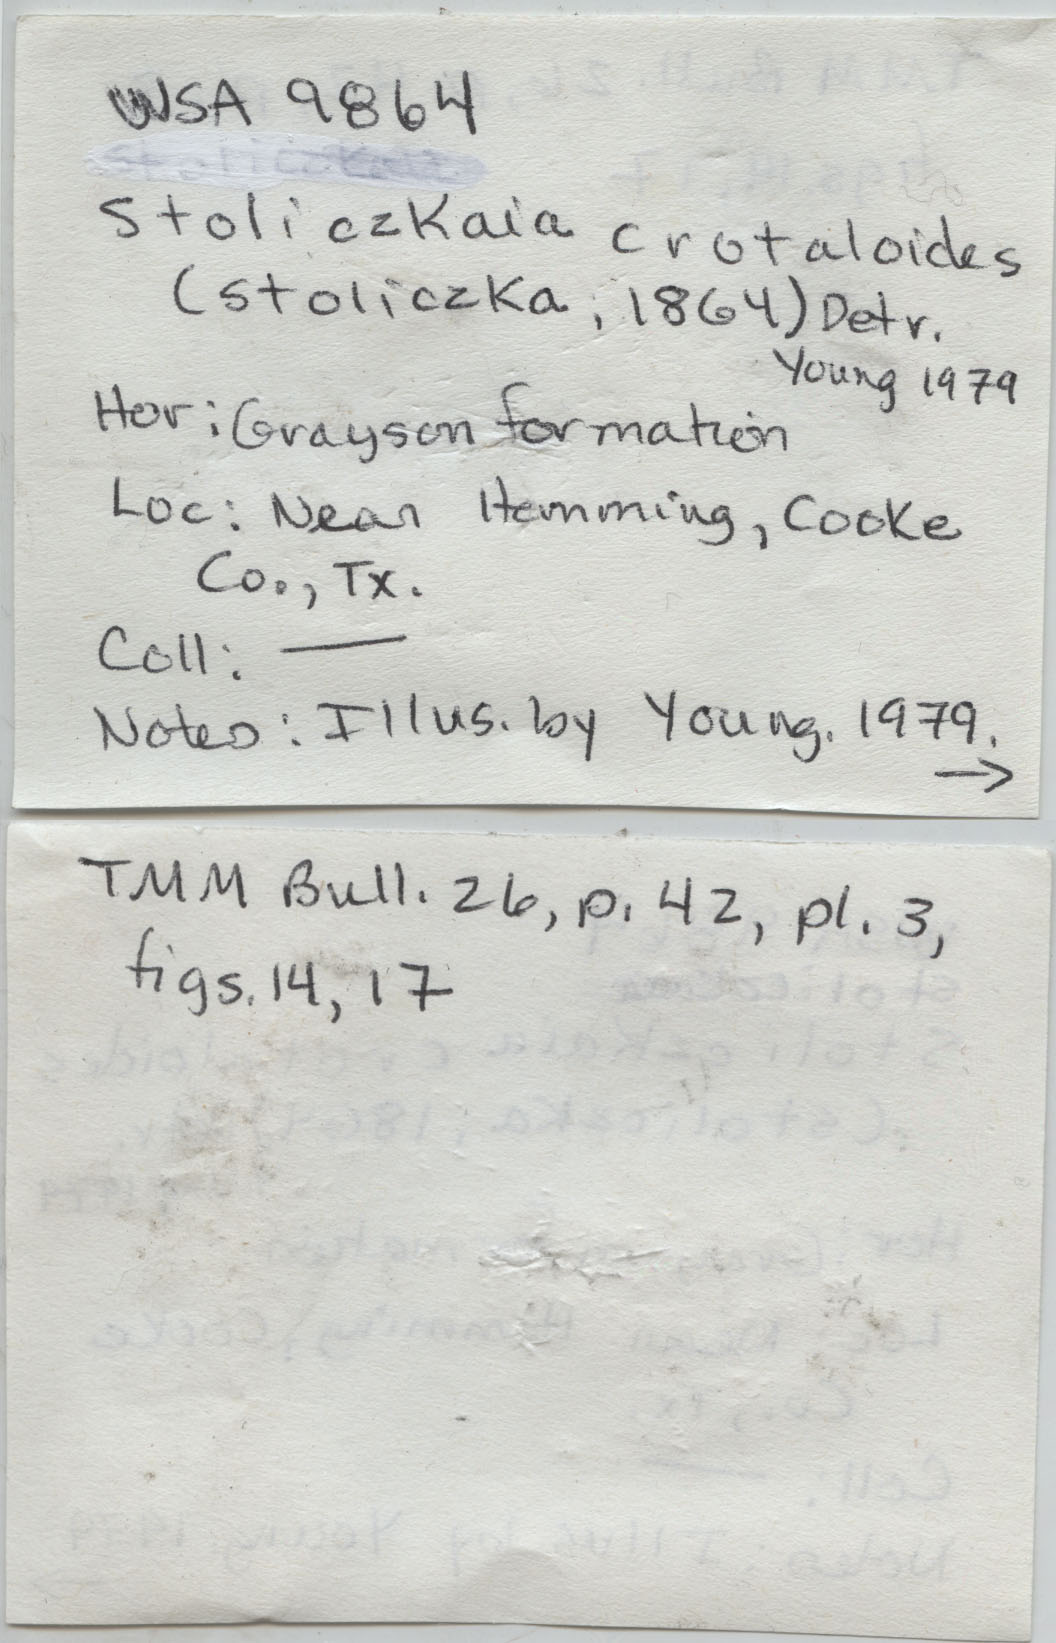 WSA 9864
Stoliczkaia crotaloides
(Stoliczka, 1864) Detr.
Young 1979
Hor: Grayson formation
Loc: Near Hemming, Cooke
Co., Tx.
Coll: —
Notes: Illus. by Young. 1979.
→
TMM Bull. 26, p. 42, pl. 3,
figs. 14, 17